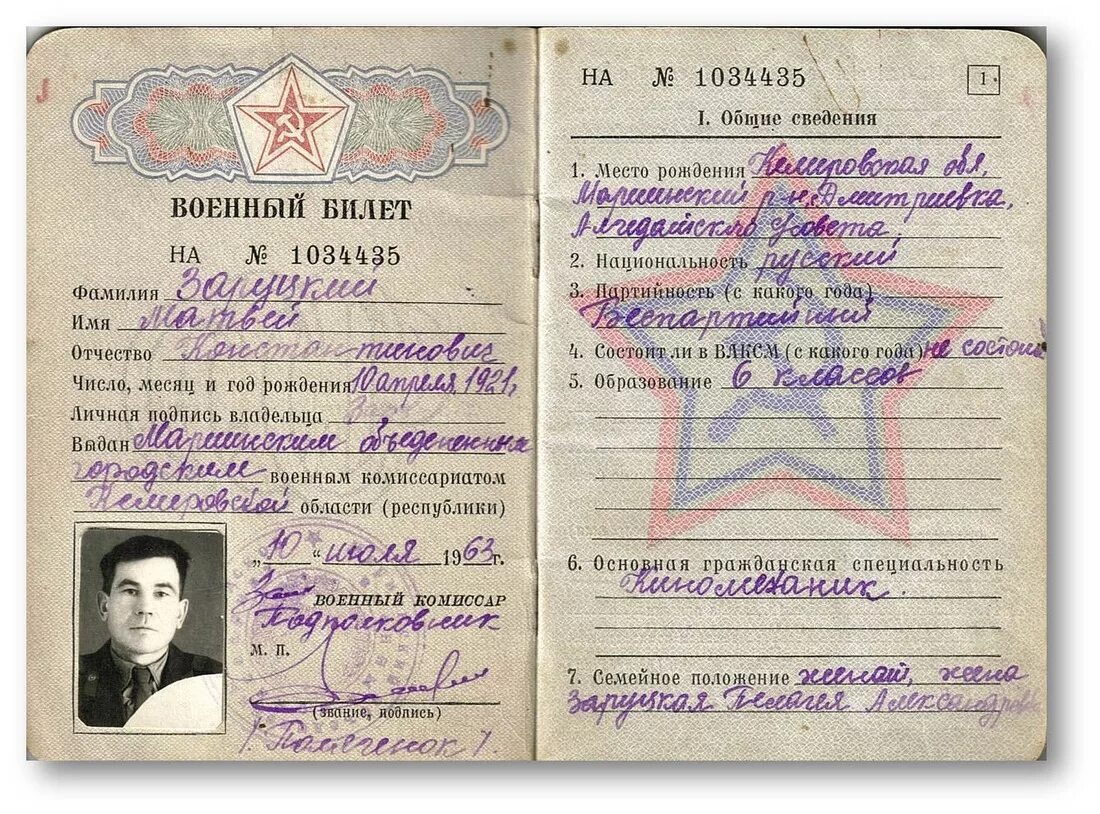 ВОЕННЫЙ БИЛЕТ
НА № 1034435
Фамилия Заруцкий
Имя Матвей
Отчество Константинович
Число, месяц и год рождения 10 апреля 1921 г.
Личная подпись владельца
Выдан Мариинским объедененным
городским военным комиссариатом
Кемеровской области (республики)
„10“ июля 1963 г.
ВОЕННЫЙ КОМИССАР
Подполковник
М. П.
(звание, подпись)
НА № 1034435
1
I. Общие сведения
1. Место рождения Кемеровская обл,
Мариинский р-н, Дмитриевка,
с/совета
2. Национальность русский
3. Партийность (с какого года)
Беспартийный
4. Состоит ли в ВЛКСМ (с какого года) не состоял
5. Образование 6 классов
6. Основная гражданская специальность
Киномеханик.
7. Семейное положение женат, жена
Заруцкая Пелагея Александровна